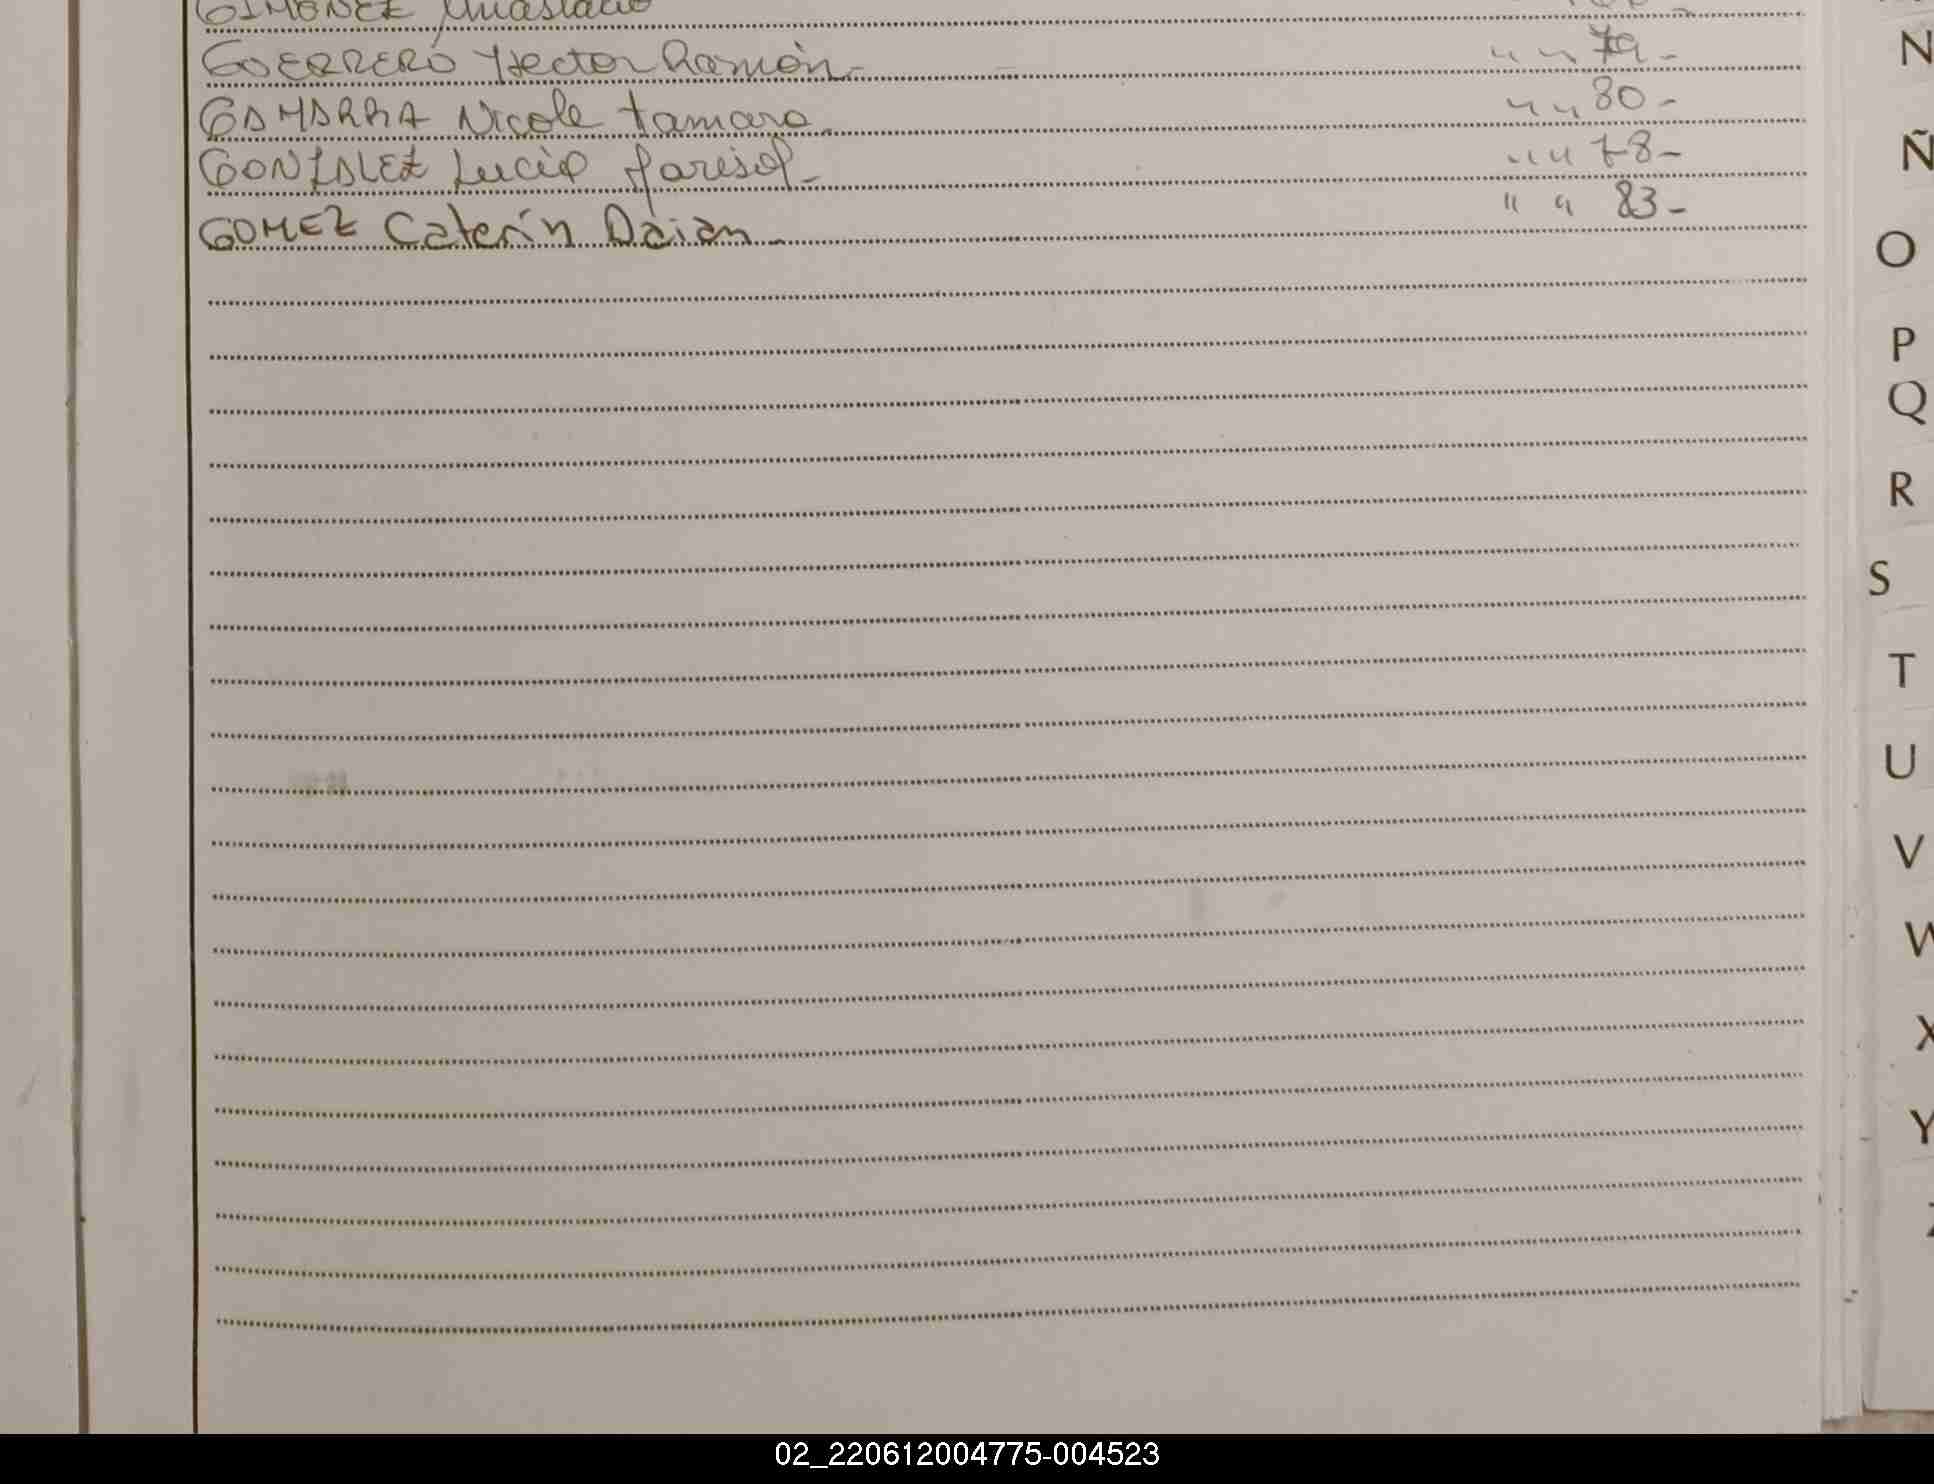 GIMENEZ Anastacio
GUERRERO Hector Ramón. " " 79 -
GAMARRA Nicole tamara. " " 80 -
GONZALEZ Lucia Marisol - " " 78 -
GOMEZ Caterin Daian - " " 83 -
N
Ñ
O
P
Q
R
S
T
U
V
W
X
Y
Z
02_220612004775-004523